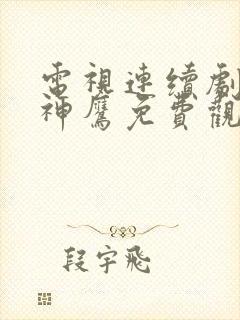 電視連續劇
神鷹免費觀
段宇飛